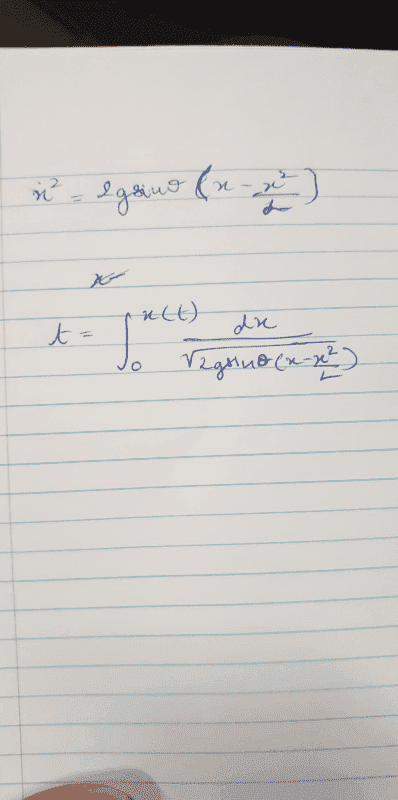 ẋ² = 2g sinθ (x - x²/L)
t = ∫₀^x(t) dx / √2g sinθ (x - x²/L)